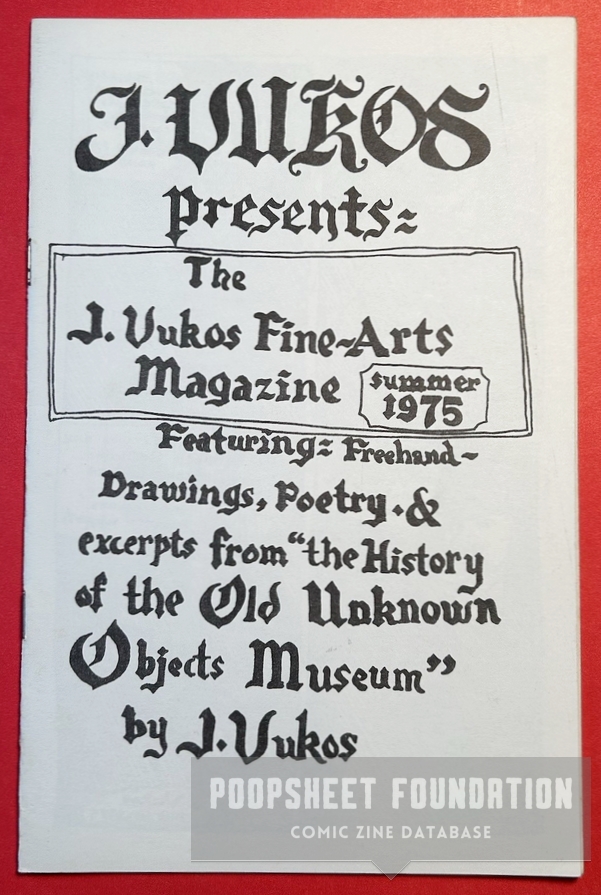 J. VUKOS
presents:
The
J. Vukos Fine-Arts
Magazine
summer
1975
Featuring: Freehand-
Drawings, Poetry. &
excerpts from "the History
of the Old Unknown
Objects Museum"
by J. Vukos
POOPSHEET FOUNDATION
COMIC ZINE DATABASE